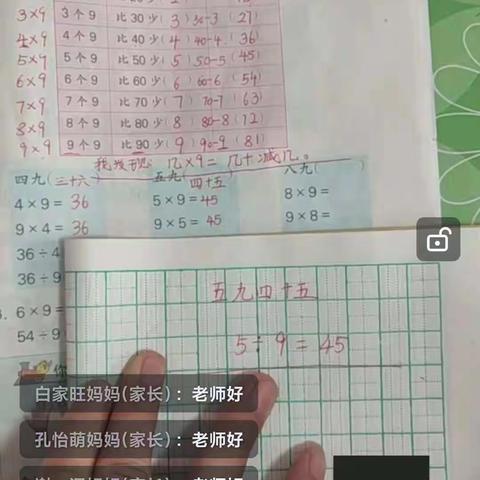 3×9 3个9 比30少(3) 30-3 (27)
4×9 4个9 比40少(4) 40-4 (36)
5×9 5个9 比50少(5) 50-5 (45)
6×9 6个9 比60少(6) 60-6 (54)
7×9 7个9 比70少(7) 70-7 (63)
8×9 8个9 比80少(8) 80-8 (72)
9×9 9个9 比90少(9) 90-9 (81)
我发现 几×9=几十减几。
四九(三十六) 五九(四十五) 八九(
4×9=36 5×9=45 8×9=
9×4=36 9×5=45 9×8=
36÷4
36÷9
6×9=
54÷9
五九四十五
5÷9=45
你
白家旺妈妈(家长):老师好
孔怡萌妈妈(家长):老师好